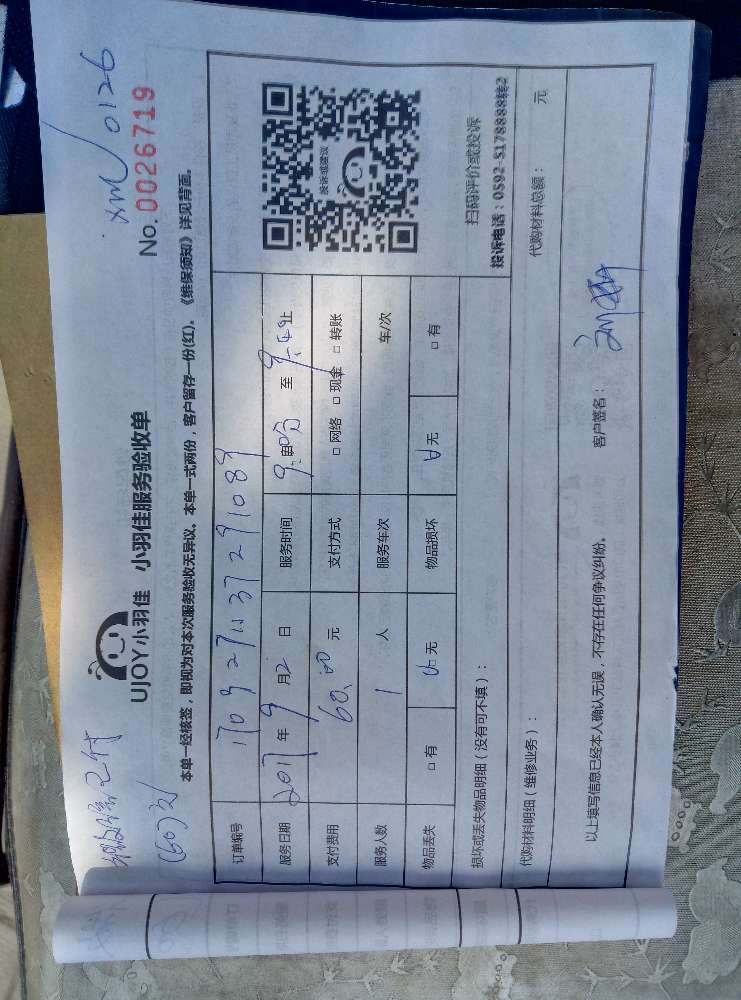 xm/0126
No.0026719
UJOY小羽佳 小羽佳服务验收单
(60)元
本单一经核签，即视为对本次服务验收无异议。本单一式两份，客户留存一份(红)。《维保须知》详见背面。
订单编号
服务日期 2017年9月2日 服务时间 至 止
支付费用 60.00元 支付方式 □网络 □现金 □转账
服务人数 1 人 服务车次 车/次
物品丢失 □有 无 物品损坏 无 □有
投诉或建议
扫码评价或投诉
投诉电话：0592-5178888转2
损坏或丢失物品明细（没有可不填）：
代购材料明细（维修业务）： 代购材料总额： 元
以上填写信息已经本人确认无误，不存在任何争议纠纷。 客户签名：